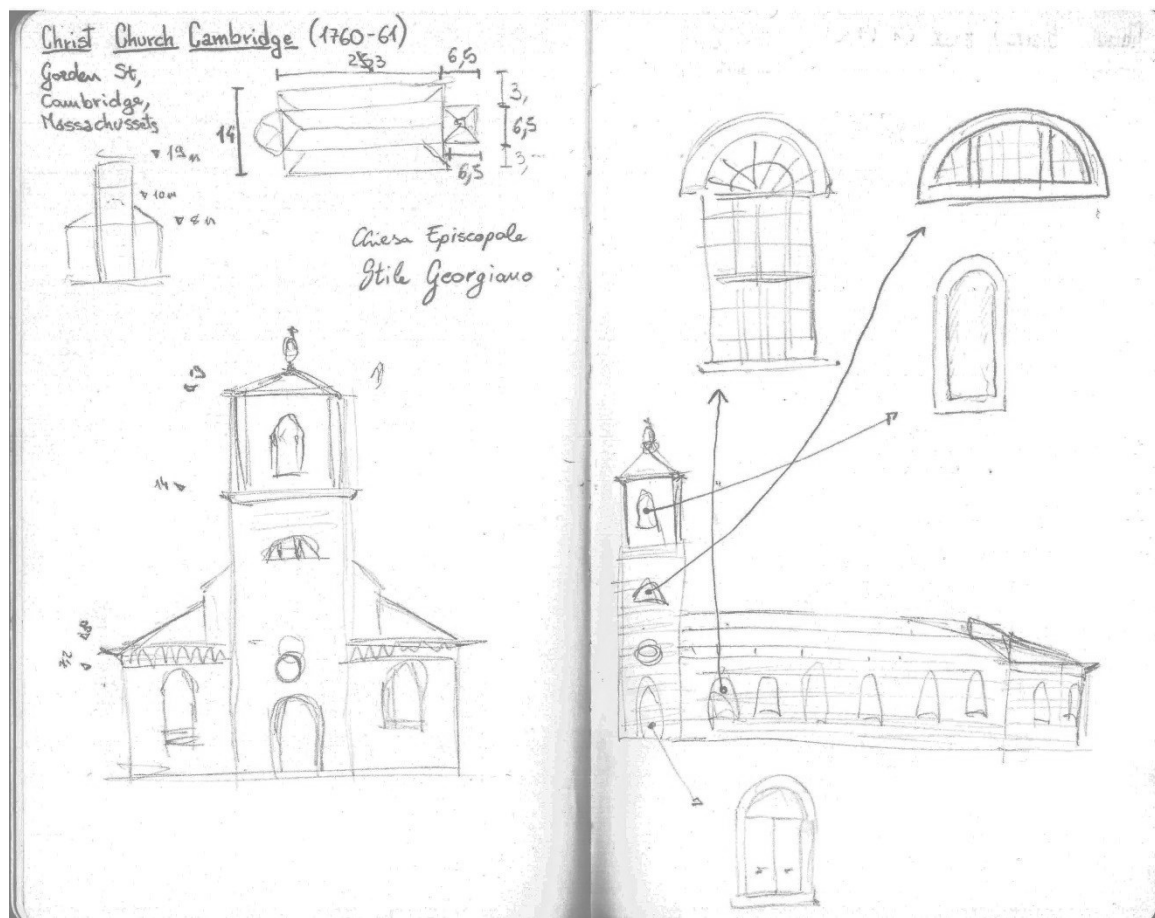 Christ Church Cambridge (1760-61)
Garden St,
Cambridge,
Massachussets
6,5
3,
14
6,5
3,
6,5
19 m
10 m
8 m
Chiesa Episcopale
Stile Georgiano
14